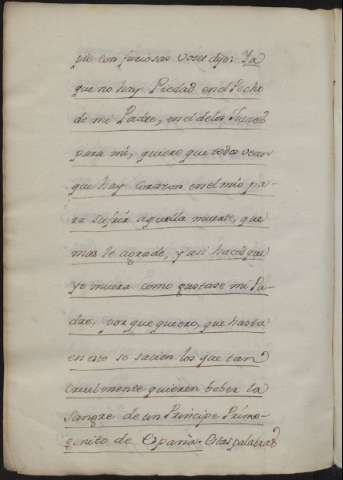 que con furiosas voces dijo: Ya
que no hay Piedad en el Pecho
de mi Padre, en el de los Jueces
para mi, quiero que todos vean
que hay corazon en el mio pa-
ra sufrir aquella muerte, que
mas le agrade, y asi haced que
yo muera como gustase mi Pa-
dre, porque quiero, que hasta
en eso se sacien los que tan
cruelmente quieren beber la
Sangre de un Principe Primo-
genito de España. Estas palabras